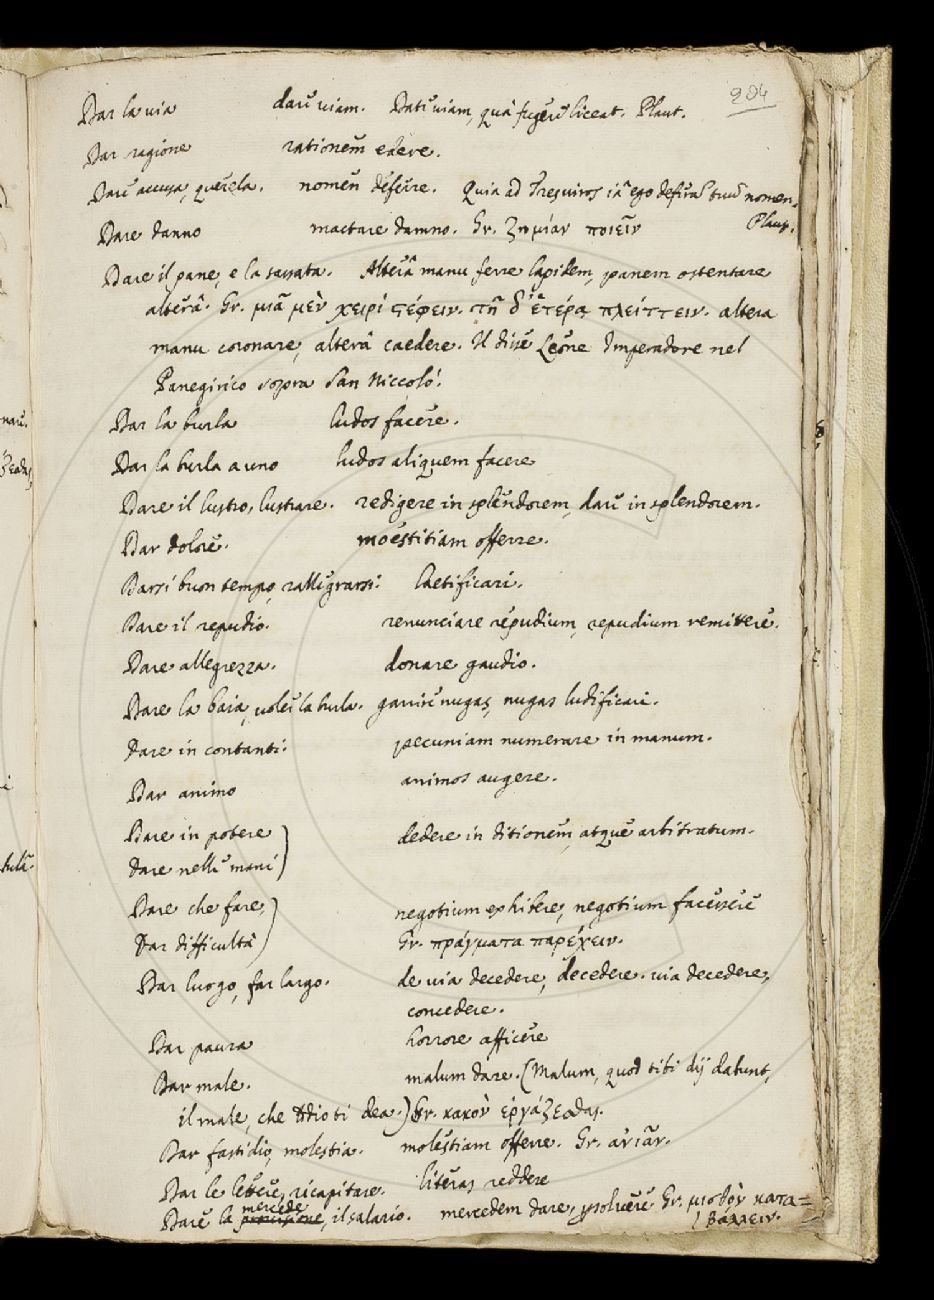 204
Dar la via dare viam. Date viam, quà fugere liceat. Plaut.
Dar ragione rationem edere.
Dare accusa, querela. nomen deferre. Quia ad Tresviros iã ego deferã tuũ nomen.
Plaut.
Dare danno mactare damno. Gr. ζημίαν ποιεῖν
Dare il pane, e la sassata. Alterâ manu ferre lapidem, panem ostentare
alterâ. Gr. μιᾶ μὲν χειρί στέφειν. τῆ δ' ἑτέρᾳ πλείττειν. altera
manu coronare, alterâ caedere. Il disse Leone Imperadore nel
Panegirico sopra San Niccolò.
Dar la burla ludos facere.
Dar la burla a uno ludos aliquem facere
Dare il lustro, lustrare. redigere in splendorem, dare in splendorem.
Dar dolore. moestitiam offerre.
Darsi buon tempo, rallegrarsi. laetificari.
Dare il repudio. renunciare repudium, repudium remittere.
Dare allegrezza. donare gaudio.
Dare la baia, voler la burla. garrire nugas, nugas ludificari.
Dare in contanti. pecuniam numerare in manum.
Dar animo animos augere.
Dare in potere dedere in ditionem atque arbitratum.
Dare nelle mani
Dare che fare, negotium exhibere, negotium facessere
Dar difficultà Gr. πράγματα παρέχειν.
Dar luogo, far largo. de via decedere, decedere. via decedere,
concedere.
Dar paura horrore afficere
Dar male. malum dare. (Malum, quod tibi dij dabunt,
il male, che Dio ti dea.) Gr. κακὸν ἐργάζεσθαι.
Dar fastidio, molestia. molestiam offerre. Gr. ἀνιᾶν.
Dar le lettere, ricapitare. literas reddere
mercede
Dare la, il salario. mercedem dare, persolvere Gr. μισθὸν κατα=
βάλλειν.